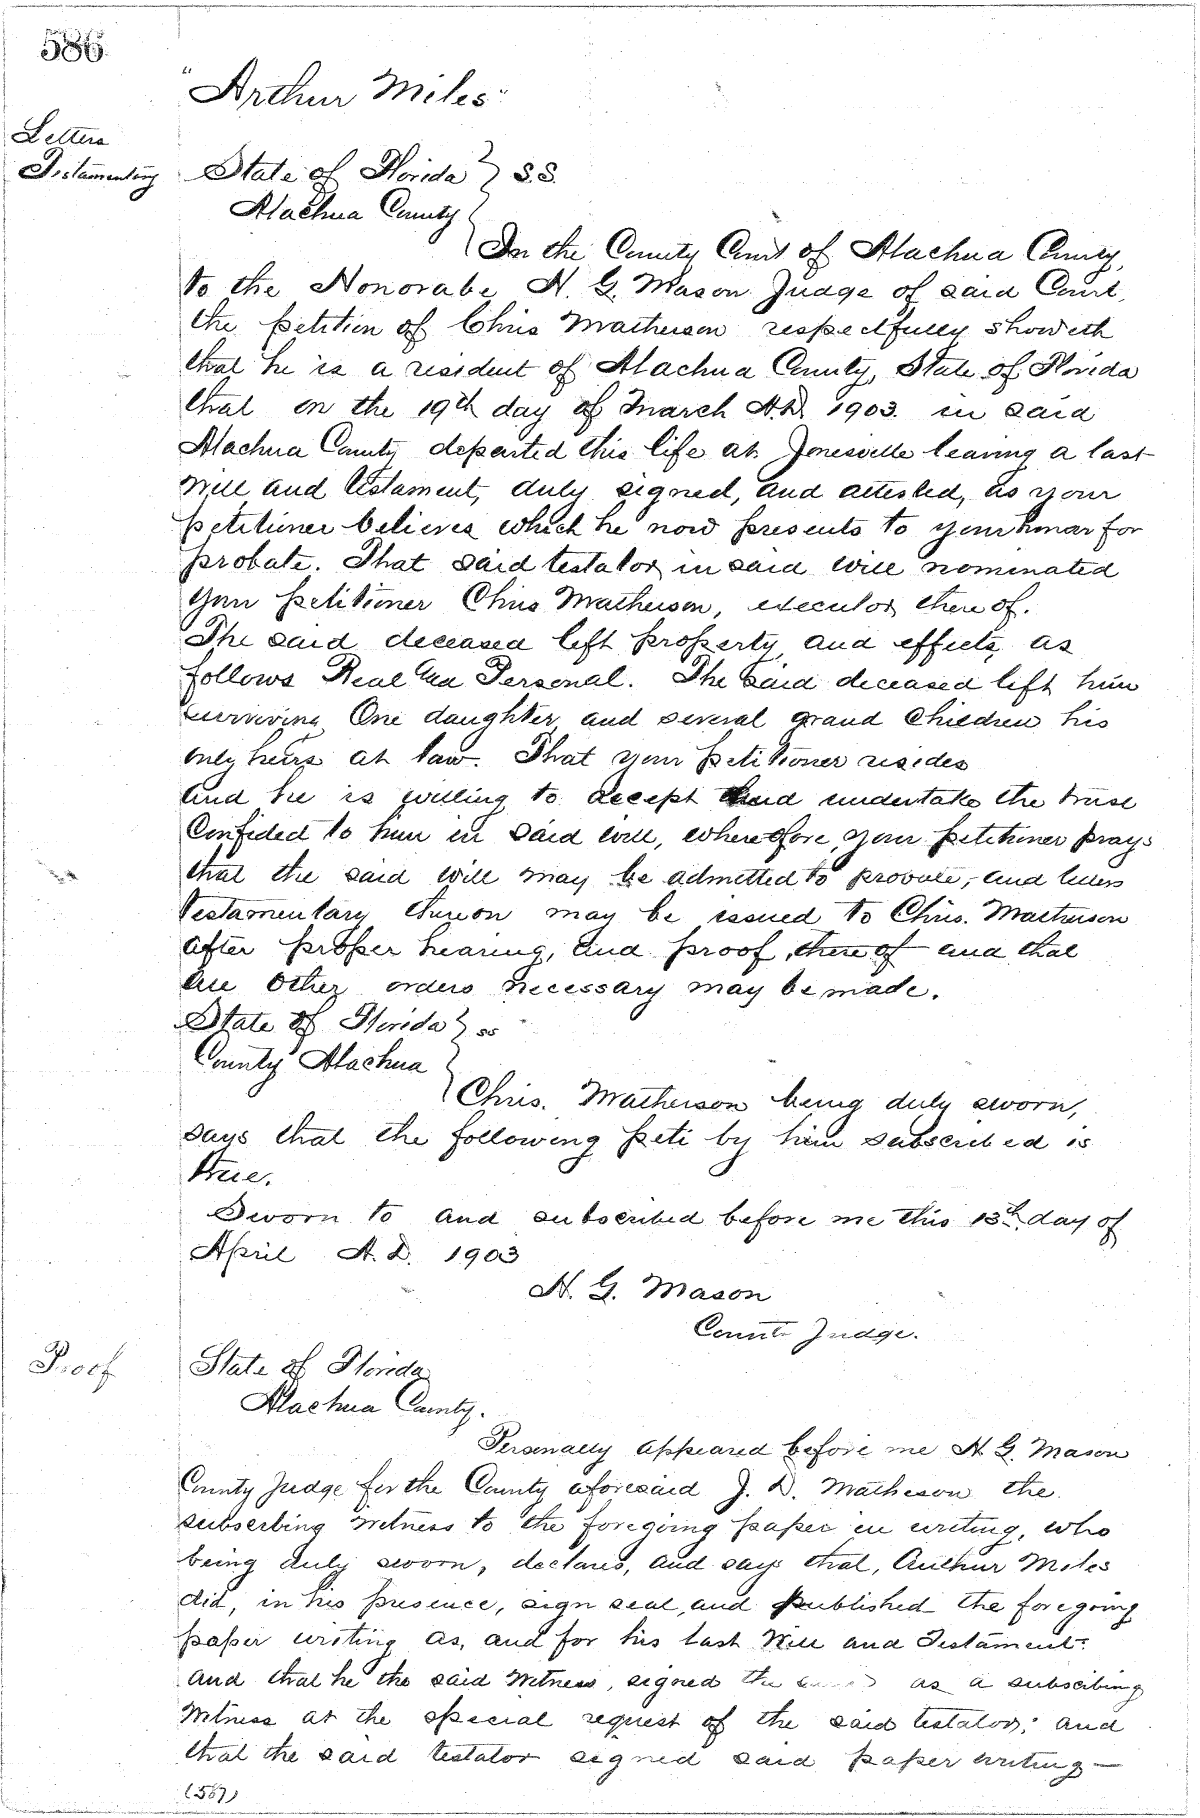 586
"Arthur Miles"
Letters
Testamentary
State of Florida } S.S.
Alachua County
In the County Court of Alachua County,
to the Honorabe H. G. Mason Judge of said Court,
the petition of Chris Matheson respectfully showeth
that he is a resident of Alachua County, State of Florida
that on the 19th day of March A.D. 1903 in said
Alachua County departed this life at Jonesville leaving a last
Will and testament, duly signed, and attested, as your
petitioner believes which he now presents to your honor for
probate. That said testator in said will nominated
your petitioner Chris Matheson, executor there of.
The said deceased left property and effects, as
follows Real and Personal. The said deceased left him
surviving One daughter, and several grand children his
only heirs at law. That your petitioner resides
and he is willing to accept and undertake the trust
Confided to him in said will, wherefore, your petitioner prays
that the said will may be admitted to probate, and letters
testamentary thereon may be issued to Chris. Matheson
after proper hearing, and proof, there of and that
all other orders necessary may be made.
State of Florida } ss
County Alachua
Chris. Matheson being duly sworn,
says that the following peti by him subscribed is
true.
Sworn to and subscribed before me this 13th day of
April A.D. 1903
H. G. Mason
County Judge.
Proof
State of Florida
Alachua County.
Personally appeared before me H. G. Mason
County Judge for the County aforesaid J. D. Matheson the
subscribing witness to the foregoing paper in writing, who
being duly sworn, declares, and says that, Arthur Miles
did, in his presence, sign seal, and published the foregoing
paper writing as, and for his last Will and Testament:
and that he the said Witness, signed the same as a subscibing
Witness at the special request of the said testator; and
that the said testator signed said paper writing—
(587)